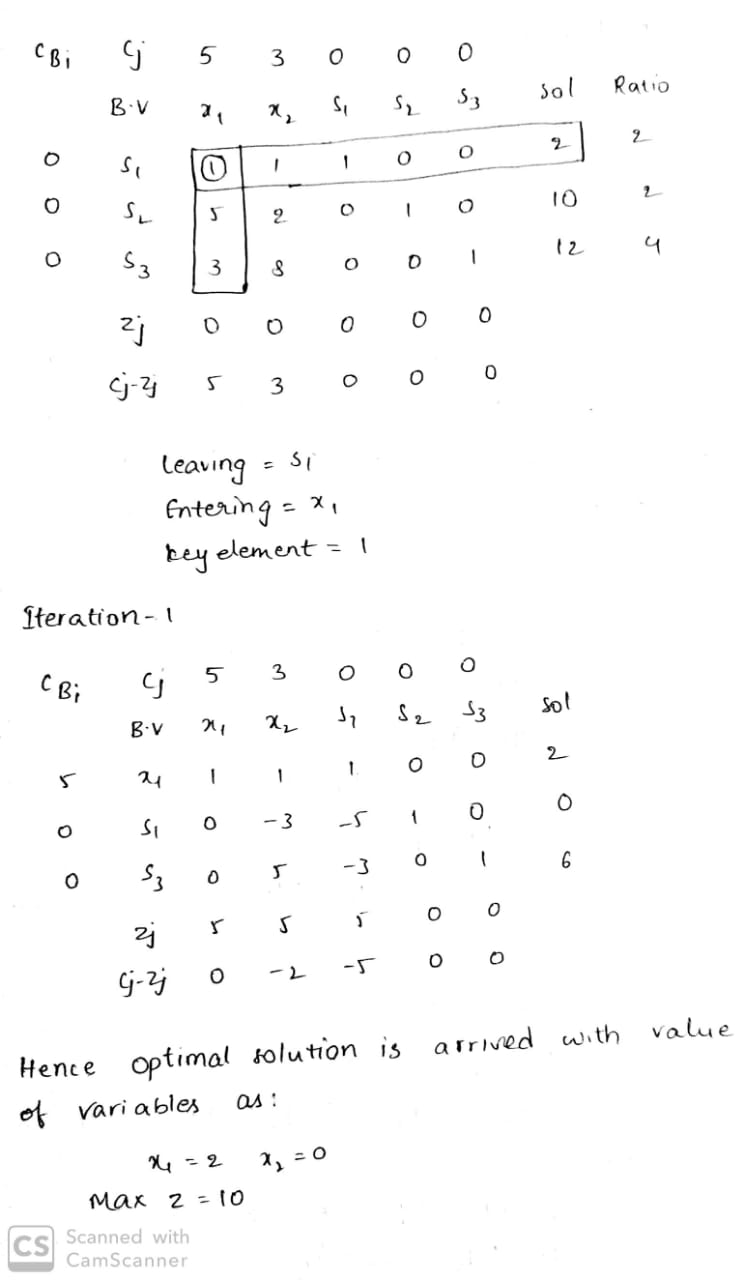 CBi Cj 5 3 0 0 0
B.V x1 x2 S1 S2 S3 Sol Ratio
0 S1 1 1 1 0 0 2 2
0 S2 5 2 0 1 0 10 2
0 S3 3 8 0 0 1 12 4
Zj 0 0 0 0 0
Cj-Zj 5 3 0 0 0
Leaving = S1
Entering = x1
key element = 1
Iteration-1
CBi Cj 5 3 0 0 0
B.V x1 x2 S1 S2 S3 Sol
5 x1 1 1 1 0 0 2
0 S1 0 -3 -5 1 0 0
0 S3 0 5 -3 0 1 6
Zj 5 5 5 0 0
Cj-Zj 0 -2 -5 0 0
Hence optimal solution is arrived with value
of variables as:
x1 = 2 x2 = 0
Max Z = 10
CS Scanned with
CamScanner